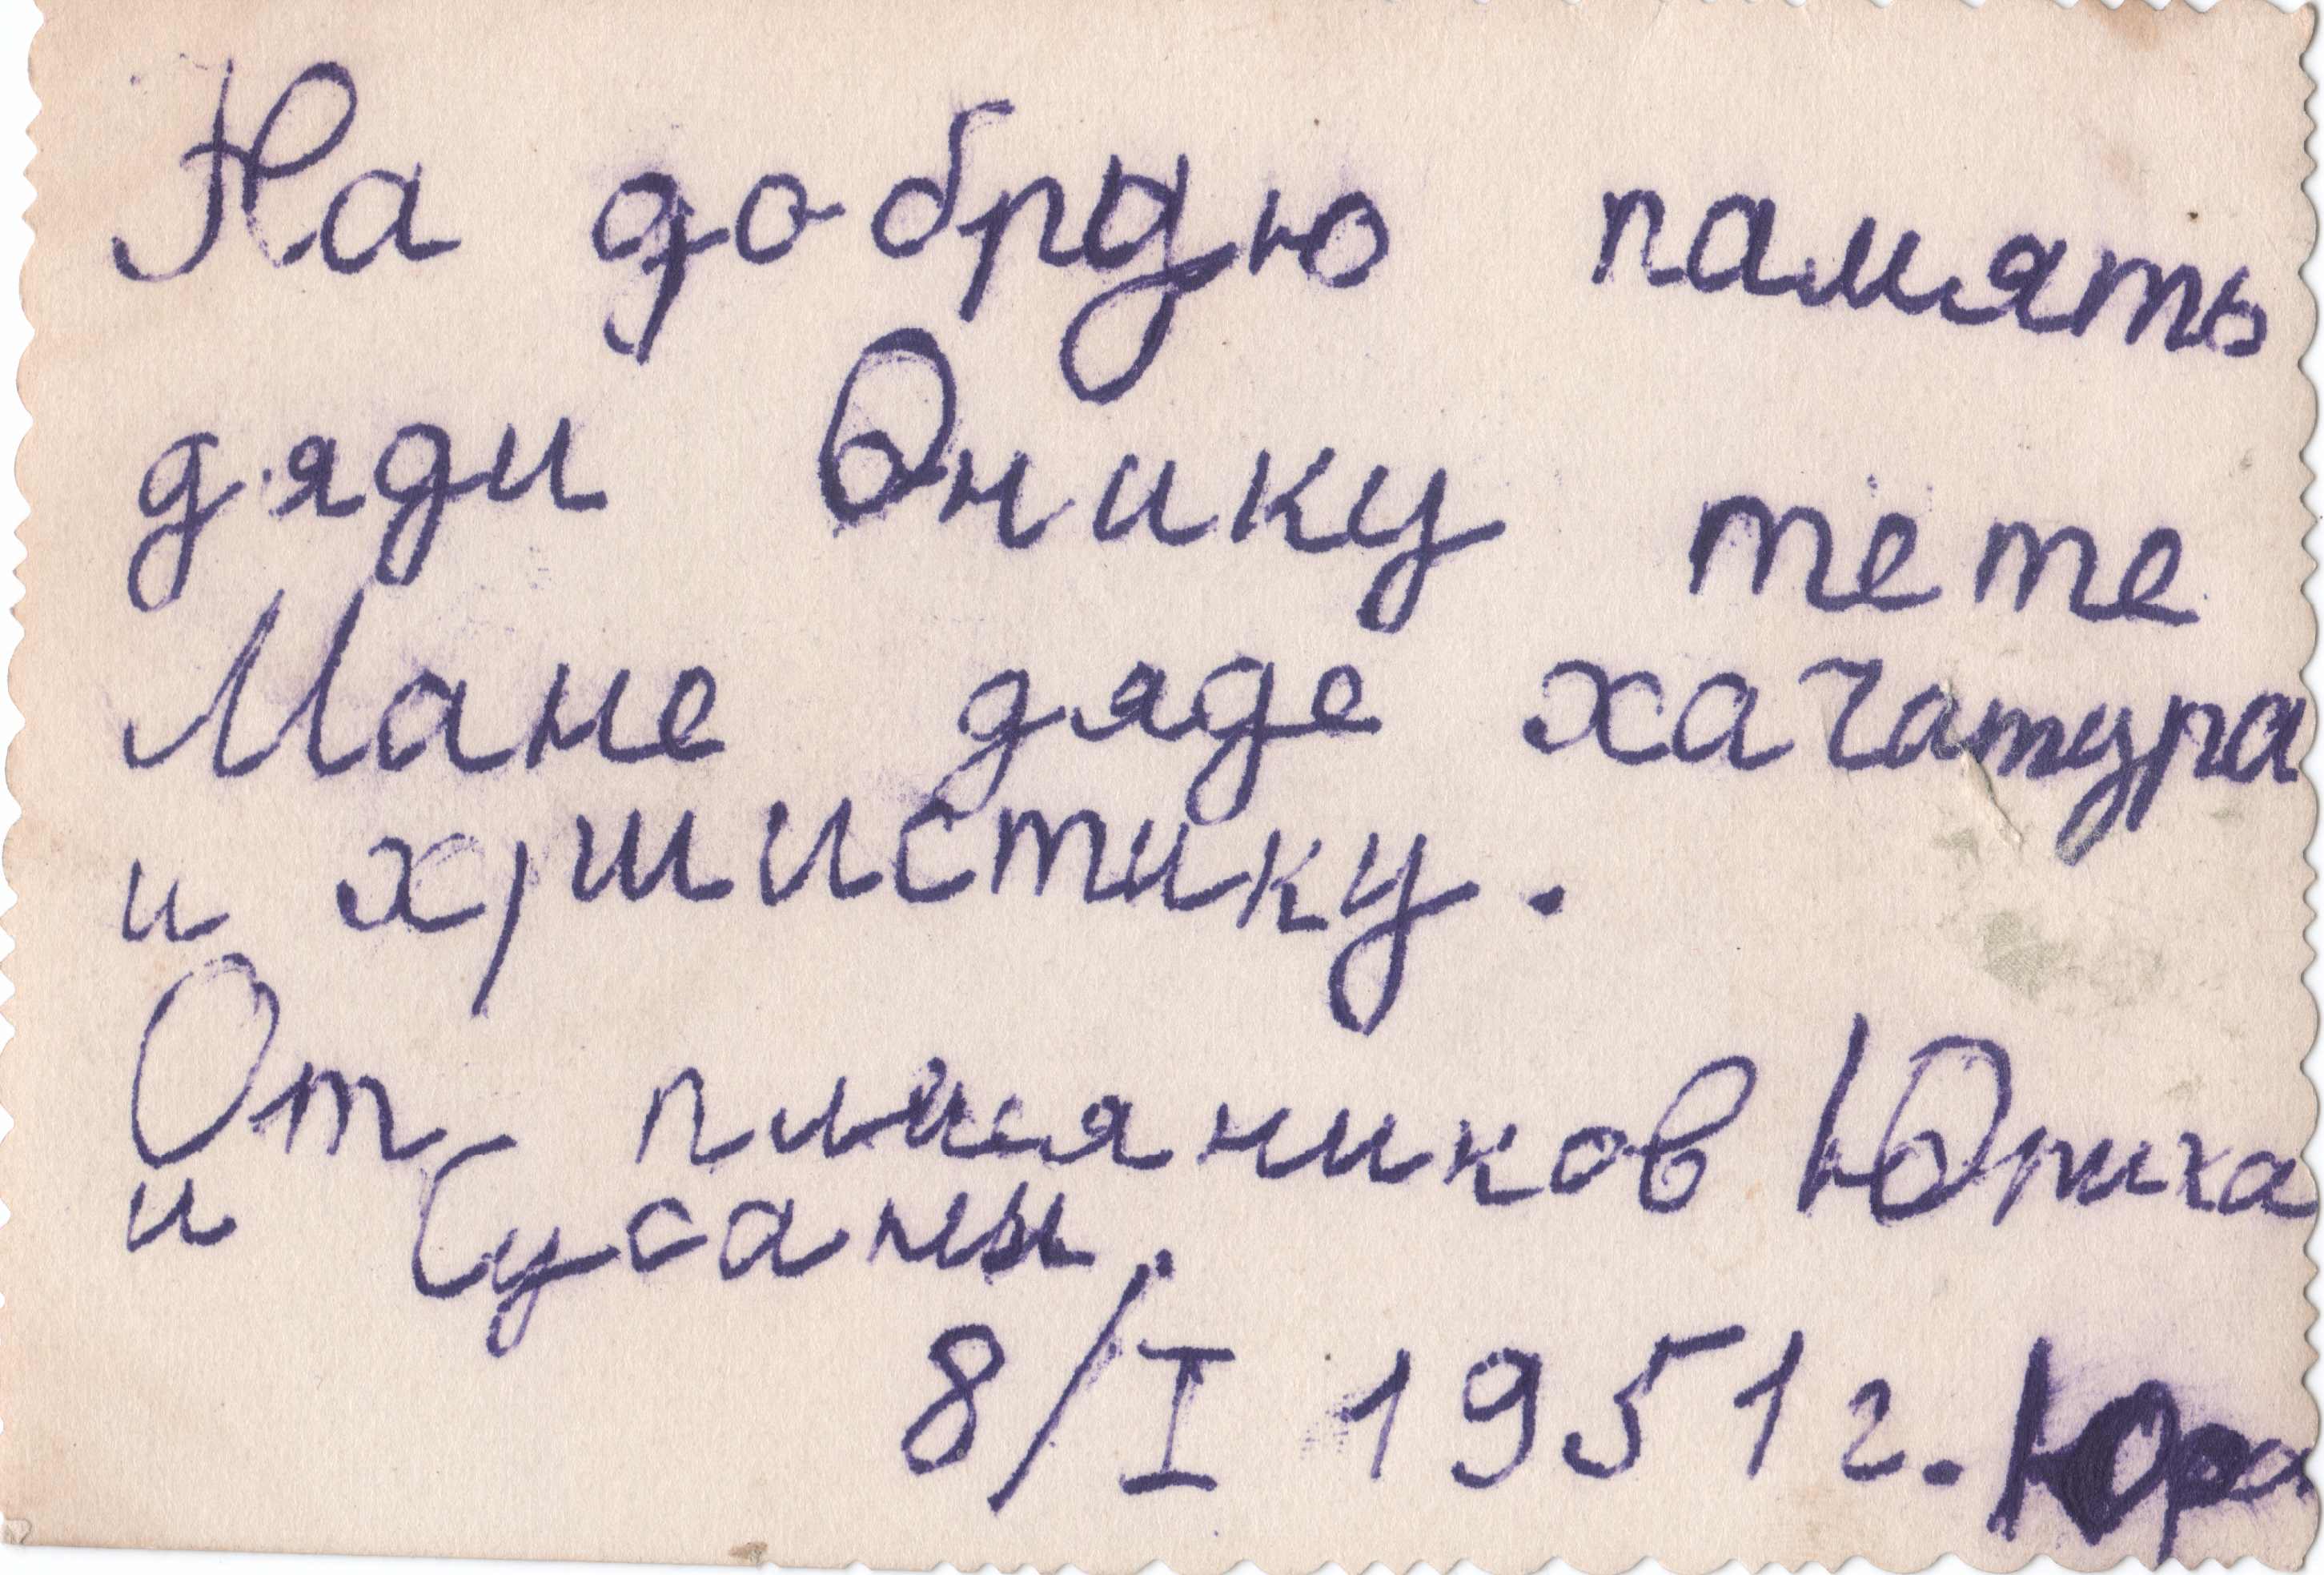 На добрую память
дяди Онику тете
Мане дяде хачатура
и хршистику.
От плимяников Юрика
и Сусаны.
8/I 1951 г. Юра